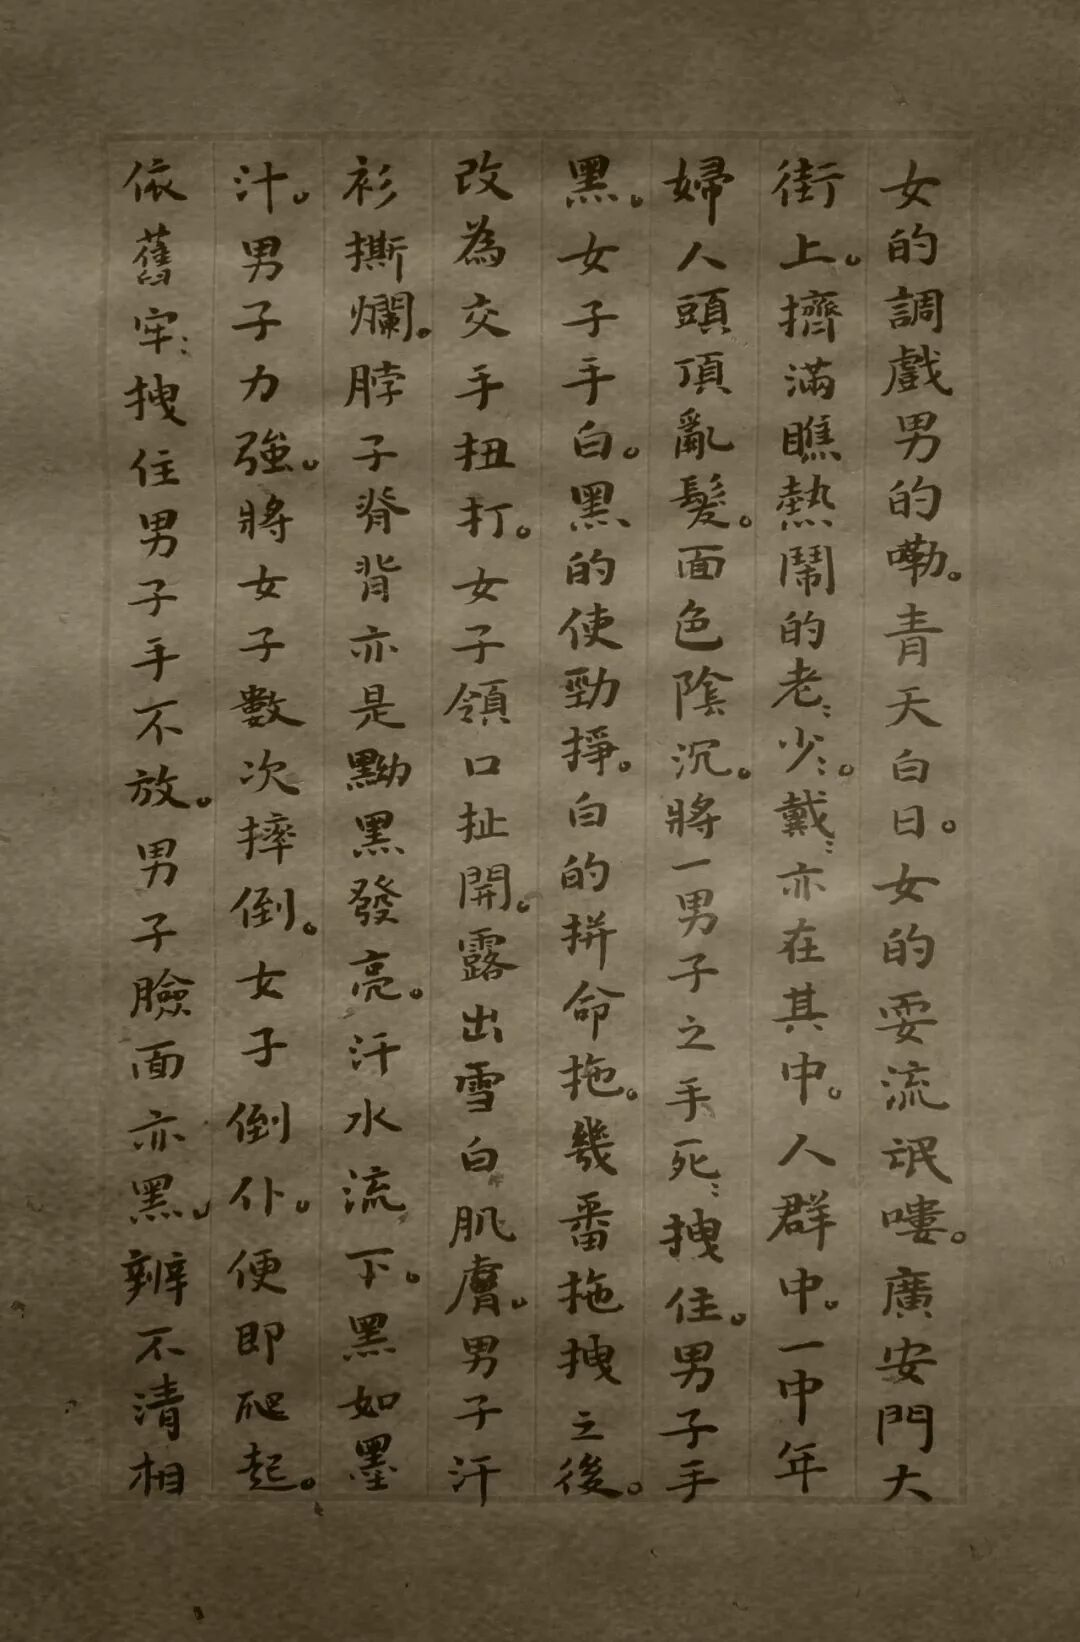 女的調戲男的嘞。青天白日。女的耍流氓嘍。廣安門大
街上。擠滿瞧熱鬧的老:少:。戴:亦在其中。人群中。一中年
婦人頭頂亂髮。面色陰沉。將一男子之手死:拽住。男子手
黑。女子手白。黑的使勁掙。白的拼命拖。幾番拖拽之後。
改為交手扭打。女子領口扯開。露出雪白肌膚。男子汗
衫撕爛。脖子脊背亦是黝黑發亮。汗水流下。黑如墨
汁。男子力強。將女子數次摔倒。女子倒仆。便即爬起。
依舊牢:拽住男子手不放。男子臉面亦黑。辨不清相